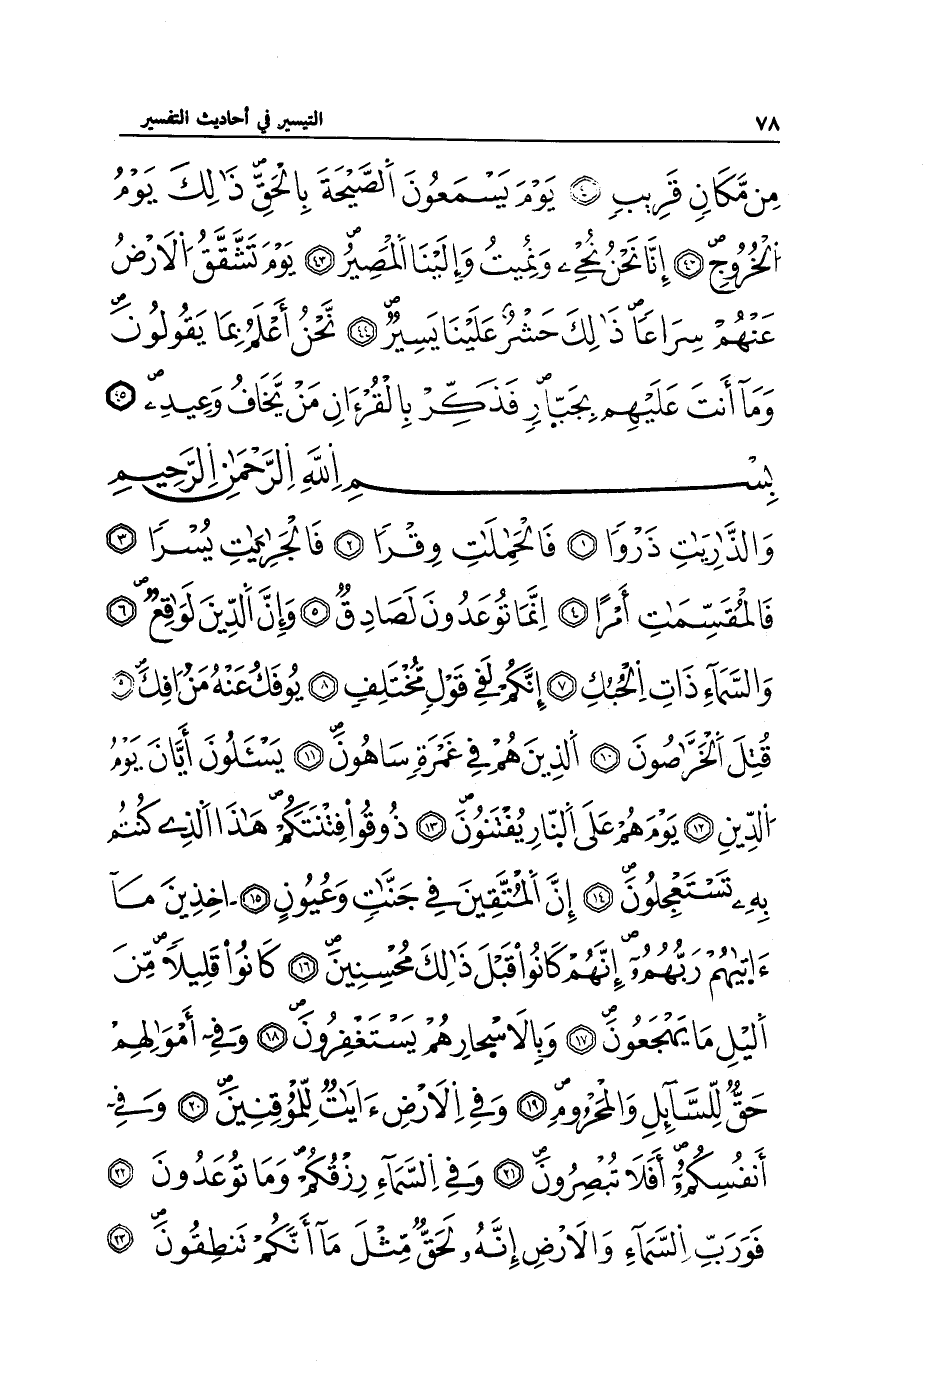 ٧٨
التيسير في أحاديث التفسير
مِن مَّكَانٖ قَرِيبٖ ٤١ يَوْمَ يَسْمَعُونَ اَلصَّيْحَةَ بِالْحَقِّۖ ذَٰلِكَ يَوْمُ
اُ۬لْخُرُوجِۖ ٤٢ إِنَّا نَحْنُ نُحْيِۦ وَنُمِيتُ وَإِلَيْنَا اَلْمَصِيرُۖ ٤٣ يَوْمَ تَشَّقَّقُ اُ۬لَارْضُ
عَنْهُمْ سِرَاعاٗۖ ذَٰلِكَ حَشْرٌ عَلَيْنَا يَسِيرٌۖ ٤٤ نَّحْنُ أَعْلَمُ بِمَا يَقُولُونَۖ
وَمَآ أَنتَ عَلَيْهِم بِجَبّ۪ارٖۖ فَذَكِّرْ بِالْقُرْءَانِ مَنْ يَّخَافُ وَعِيدِۦۖ ٤٥
بِسْمِ اِ۬للَّهِ اِ۬لرَّحْمَٰنِ اِ۬لرَّحِيمِ
وَالذَّٰرِيَٰتِ ذَرْواٗ ١ فَالْحَٰمِلَٰتِ وِقْراٗ ٢ فَالْجَٰرِيَٰتِ يُسْراٗ ٣
فَالْمُقَسِّمَٰتِ أَمْراً ٤ اِنَّمَا تُوعَدُونَ لَصَادِقٞ ٥ وَإِنَّ اَلدِّينَ لَوَٰقِعٞۖ ٦
وَالسَّمَآءِ ذَاتِ اِ۬لْحُبُكِ ٧ إِنَّكُمْ لَفِے قَوْلٖ مُّخْتَلِفٖ ٨ يُوفَكُ عَنْهُ مَنُ ا۟فِكَۖ ٩
قُتِلَ اَلْخَرَّٰصُونَ ١٠ اَلذِينَ هُمْ فِے غَمْرَةٖ سَاهُونَۖ ١١ يَسْـَٔلُونَ أَيَّانَ يَوْمُ
اُ۬لدِّينِ ١٢ يَوْمَ هُمْ عَلَى اَلنّ۪ارِ يُفْتَنُونَۖ ١٣ ذُوقُواْ فِتْنَتَكُمْۖ هَٰذَا اَلذِے كُنتُم
بِهِۦ تَسْتَعْجِلُونَۖ ١٤ إِنَّ اَلْمُتَّقِينَ فِے جَنَّٰتٖ وَعُيُونٍ ١٥ ـ‍اخِذِينَ مَآ
ءَات۪يٰهُمْ رَبُّهُمُۥٓۖ إِنَّهُمْ كَانُواْ قَبْلَ ذَٰلِكَ مُحْسِنِينَۖ ١٦ كَانُواْ قَلِيلاٗۖ مِّنَ
اَ۬ليْلِ مَا يَهْجَعُونَۖ ١٧ وَبِالَاسْح۪ارِ هُمْ يَسْتَغْفِرُونَۖ ١٨ وَفِےٓ أَمْوَٰلِهِمْ
حَقّٞ لِّلسَّآئِلِ وَالْمَحْرُومِۖ ١٩ وَفِے اِ۬لَارْضِ ءَايَٰتٞ لِّلْمُوقِنِينَۖ ٢٠ وَفِےٓ
أَنفُسِكُمُۥٓۖ أَفَلَا تُبْصِرُونَۖ ٢١ وَفِے اِ۬لسَّمَآءِ رِزْقُكُمْۖ وَمَا تُوعَدُونَ ٢٢
فَوَرَبِّ اِ۬لسَّمَآءِ وَالَارْضِ إِنَّهُۥ لَحَقّٞ مِّثْلَ مَآ أَنَّكُمْ تَنطِقُونَۖ ٢٣